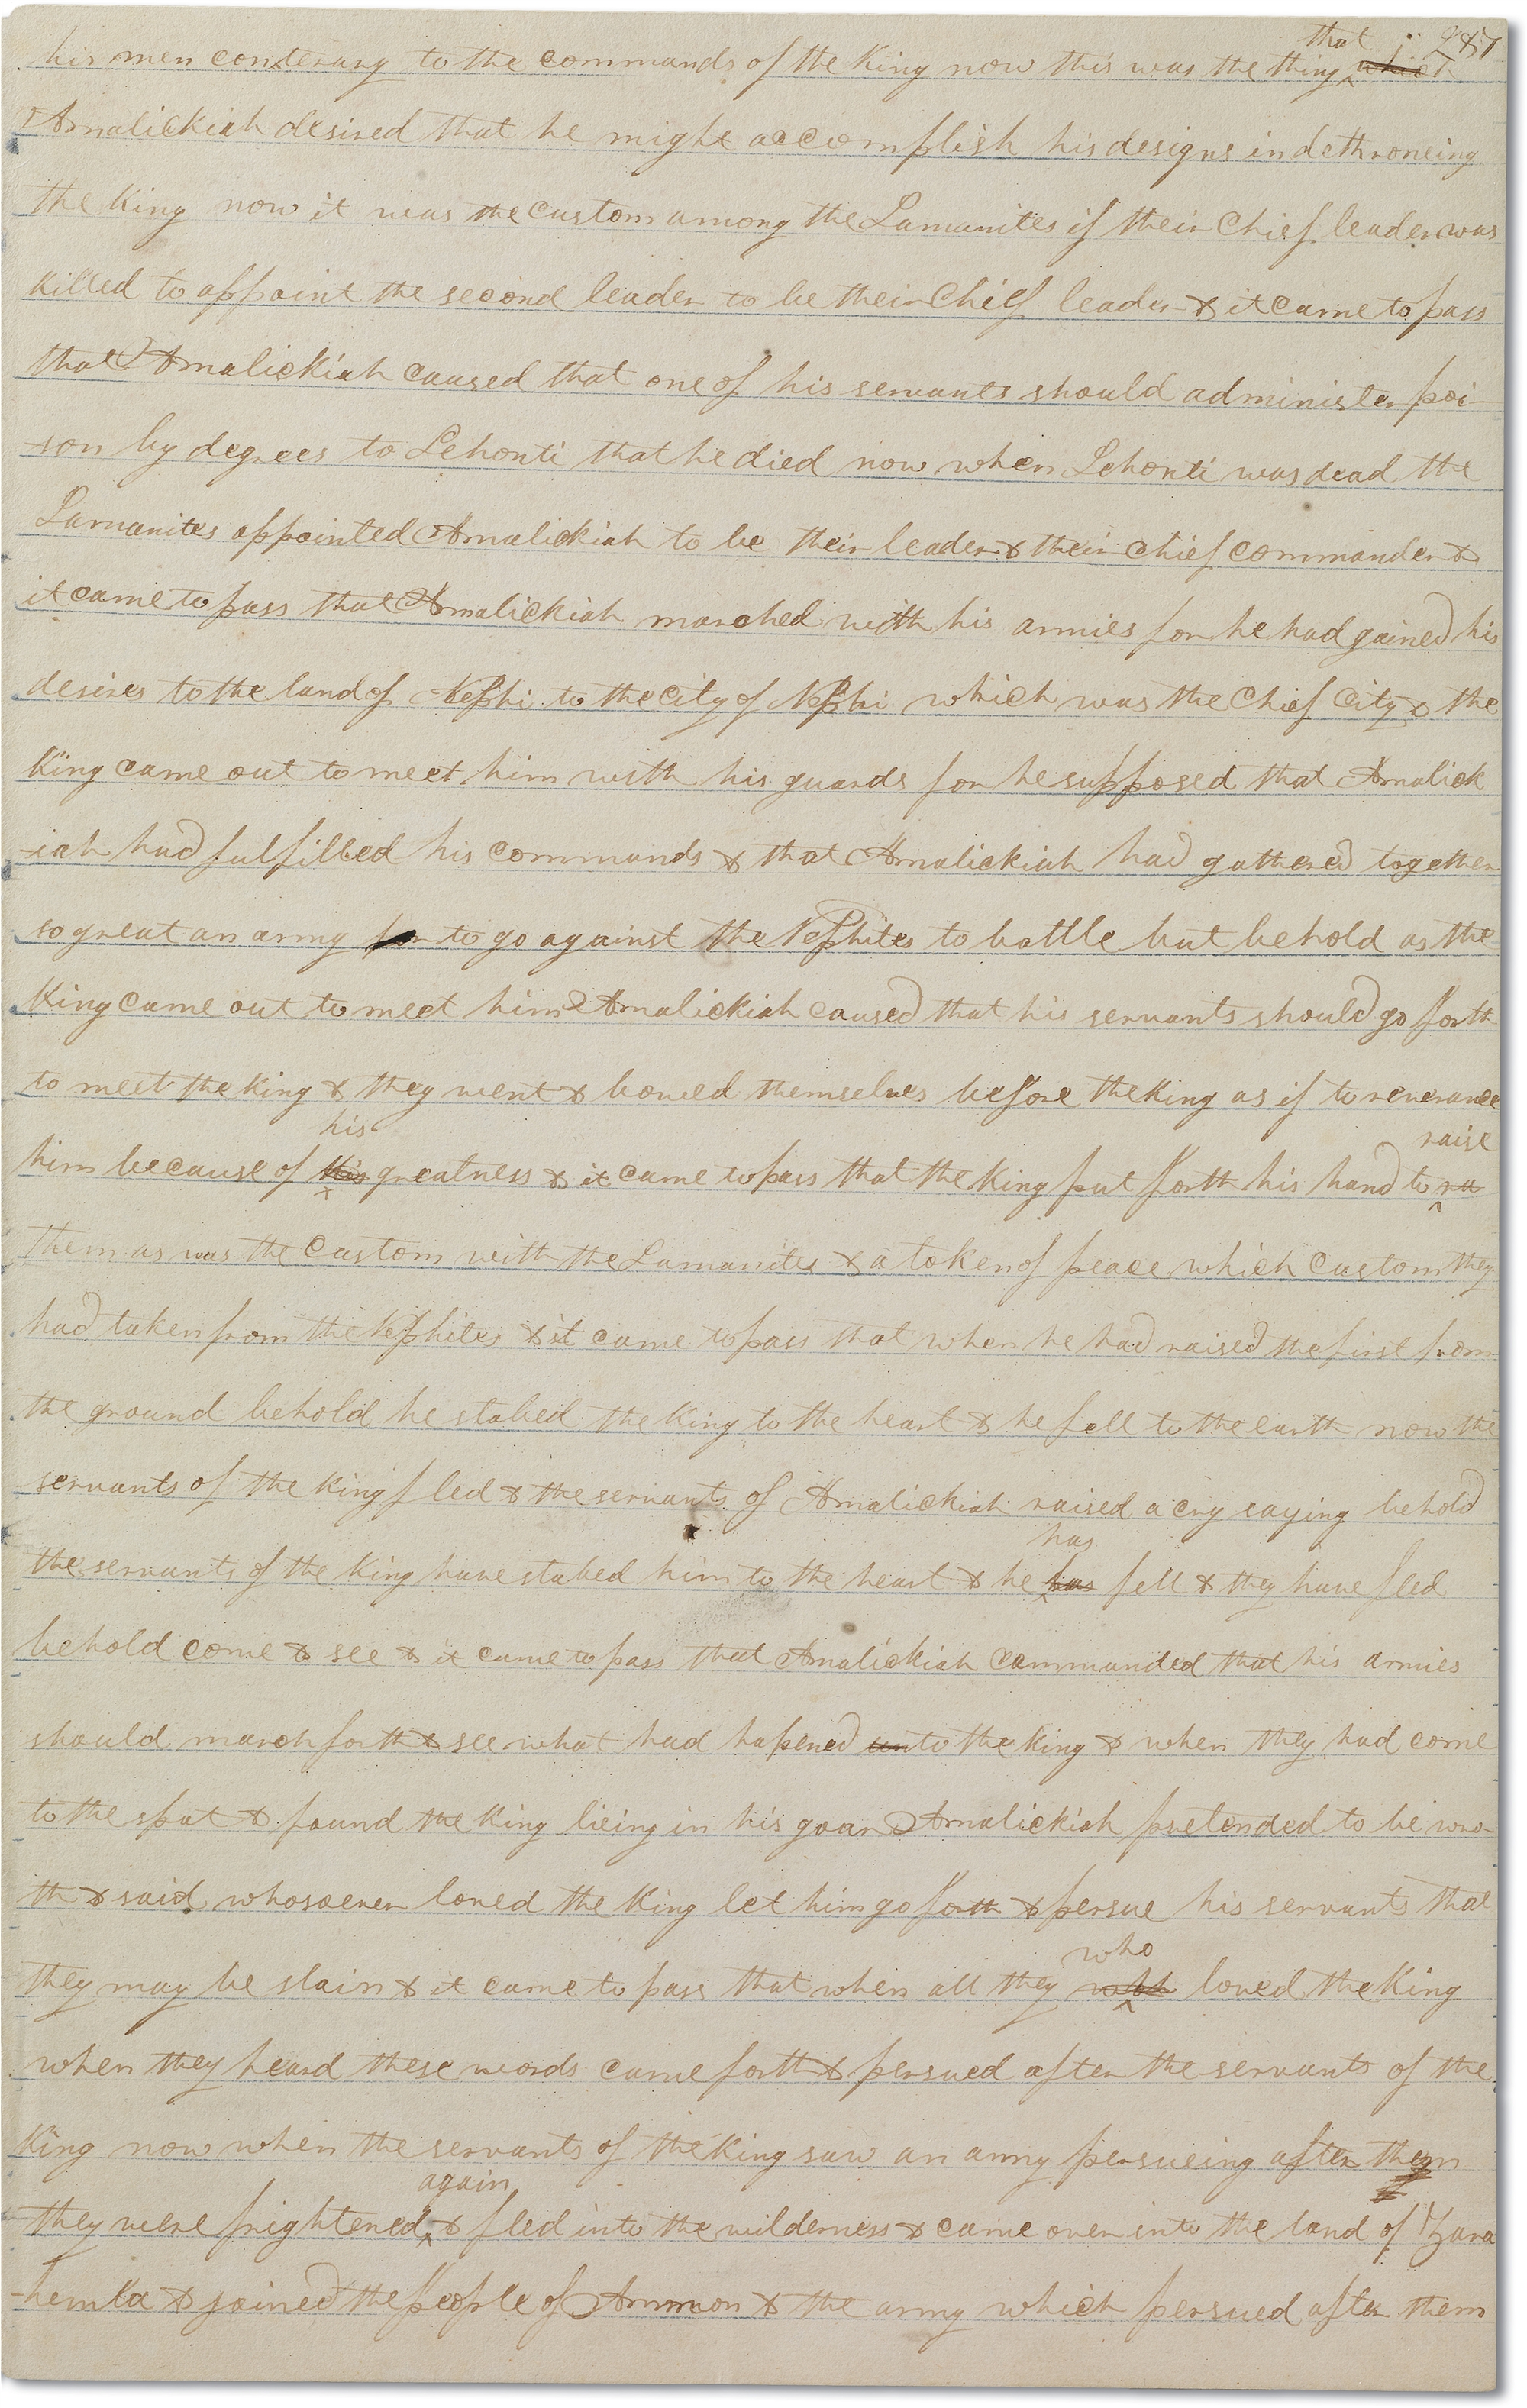 287
his men conterary to the commands of the King now this was the thing that which
Amalickiah desired that he might accomplish his designs in dethroneing
the King now it was the custom among the Lamanites if their Chief leader was
killed to appoint the second leader to be their Chief leader & it came to pass
that Amalickiah caused that one of his servants should administer poi
-son by degrees to Lehonti that he died now when Lehonti was dead the
Lamanites appointed Amalickiah to be their leader & their chief commander &
it came to pass that Amalickiah marched with his armies for he had gained his
desires to the land of Nephi to the city of Nephi which was the Chief City & the
King came out to meet him with his guards for he supposed that Amalick
-iah had fulfilled his commands & that Amalickiah had gathered together
so great an army for to go against the Nephites to battle but behold as the
King came out to meet him Amalickiah caused that his servants should go forth
to meet the King & they went & bowed themselves before the King as if to reverance
him because of his his greatness & it came to pass that the King put forth his hand to raise ra
them as was the custom with the Lamanites & a token of peace which custom they
had taken from the Nephites & it came to pass that when he had raised the first from
the ground behold he stabed the King to the heart & he fell to the earth now the
servants of the King fled & the servants of Amalickiah raised a cry saying behold
the servants of the King have stabed him to the heart & he has has fell & they have fled
behold come & see & it came to pass that Amalickiah commanded that his armies
should march forth & see what had hapened unto the King & when they had come
to the spot & found the King lieing in his goar Amalickiah pretended to be wro
th & said whosoever loved the King let him go forth & persue his servants that
they may be slain & it came to pass that when all they who loved the King
when they heard these words came forth & persued after the servants of the
King now when the servants of the King saw an army persueing after them
they were frightened again & fled into the wilderness & came over into the land of Zara
-hemla & joined the People of Ammon & the army which persued after them